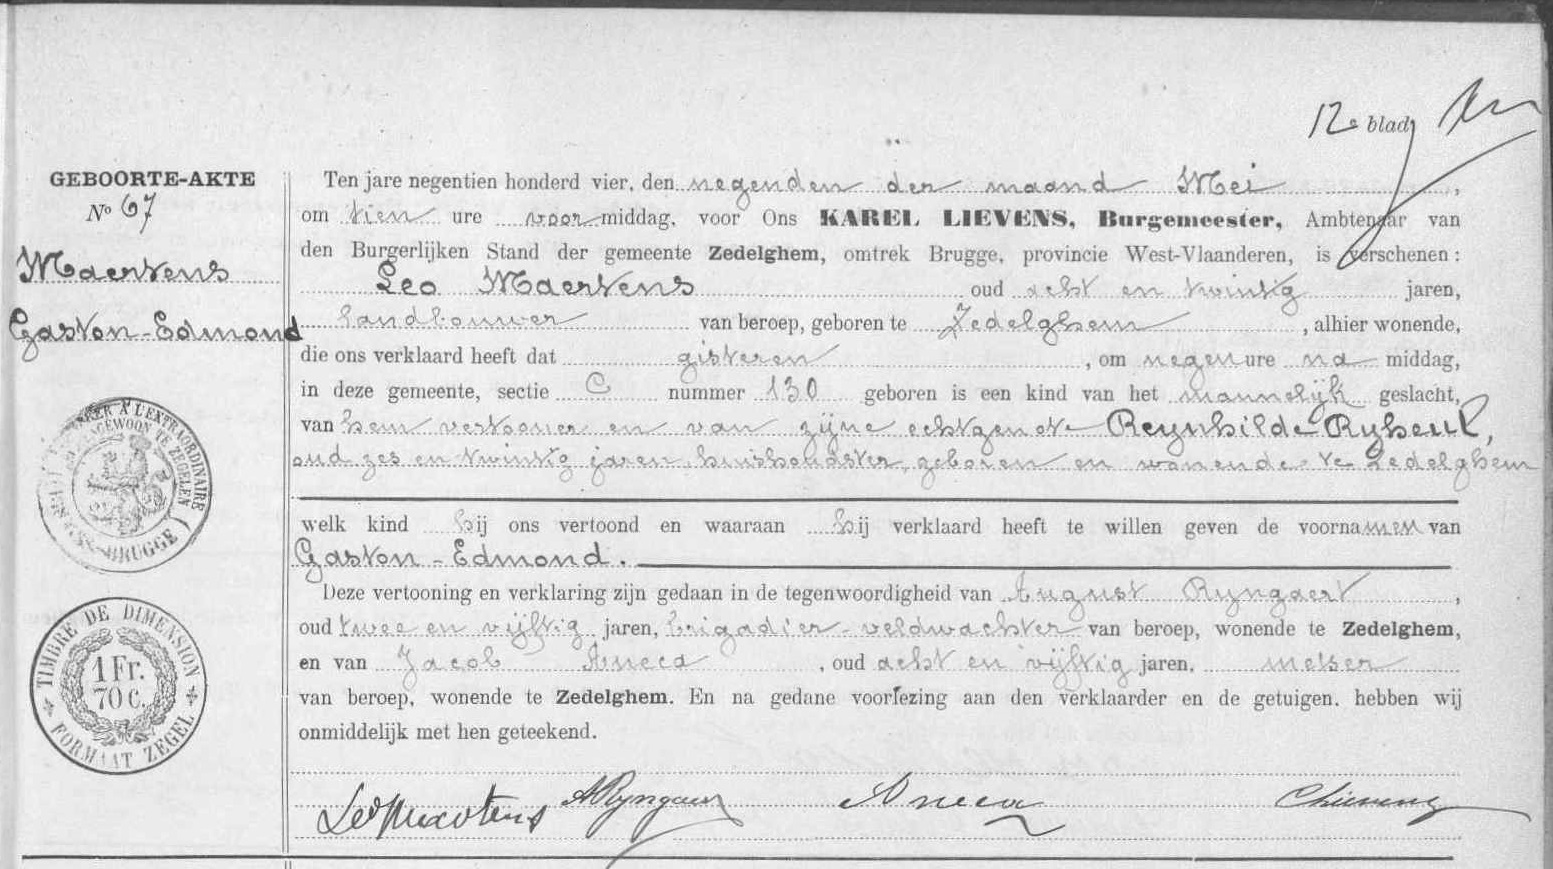 12e blad
GEBOORTE-AKTE
No 67
Maertens
Gaston-Edmond
Ten jare negentien honderd vier, den negenden der maand Mei,
om tien ure voormiddag, voor Ons KAREL LIEVENS, Burgemeester, Ambtenaar van
den Burgerlijken Stand der gemeente Zedelghem, omtrek Brugge, provincie West-Vlaanderen, is verschenen :
Leo Maertens oud acht en twintig jaren,
landbouwer van beroep, geboren te Zedelghem, alhier wonende,
die ons verklaard heeft dat gisteren, om negen ure na middag,
in deze gemeente, sectie C nummer 130 geboren is een kind van het mannelijk geslacht,
van hem vertooner en van zijne echtgenote Reynhilde Ryheul,
oud zes en twintig jaren, huishoudster, geboren en wonende te Zedelghem
welk kind hij ons vertoond en waaraan hij verklaard heeft te willen geven de voornamen van
Gaston-Edmond.
Deze vertooning en verklaring zijn gedaan in de tegenwoordigheid van August Ryngaert,
oud twee en vijftig jaren, brigadier-veldwachter van beroep, wonende te Zedelghem,
en van Jacob Aneca, oud acht en vijftig jaren, metser
van beroep, wonende te Zedelghem. En na gedane voorlezing aan den verklaarder en de getuigen, hebben wij
onmiddelijk met hen geteekend.
Leo Maertens ARyngaert Aneca
A L'EXTRAORDINAIRE
BUITENGEWOON TE ZEGELEN
BRUGGE
TIMBRE DE DIMENSION
1 Fr.
70 C.
FORMAAT ZEGEL